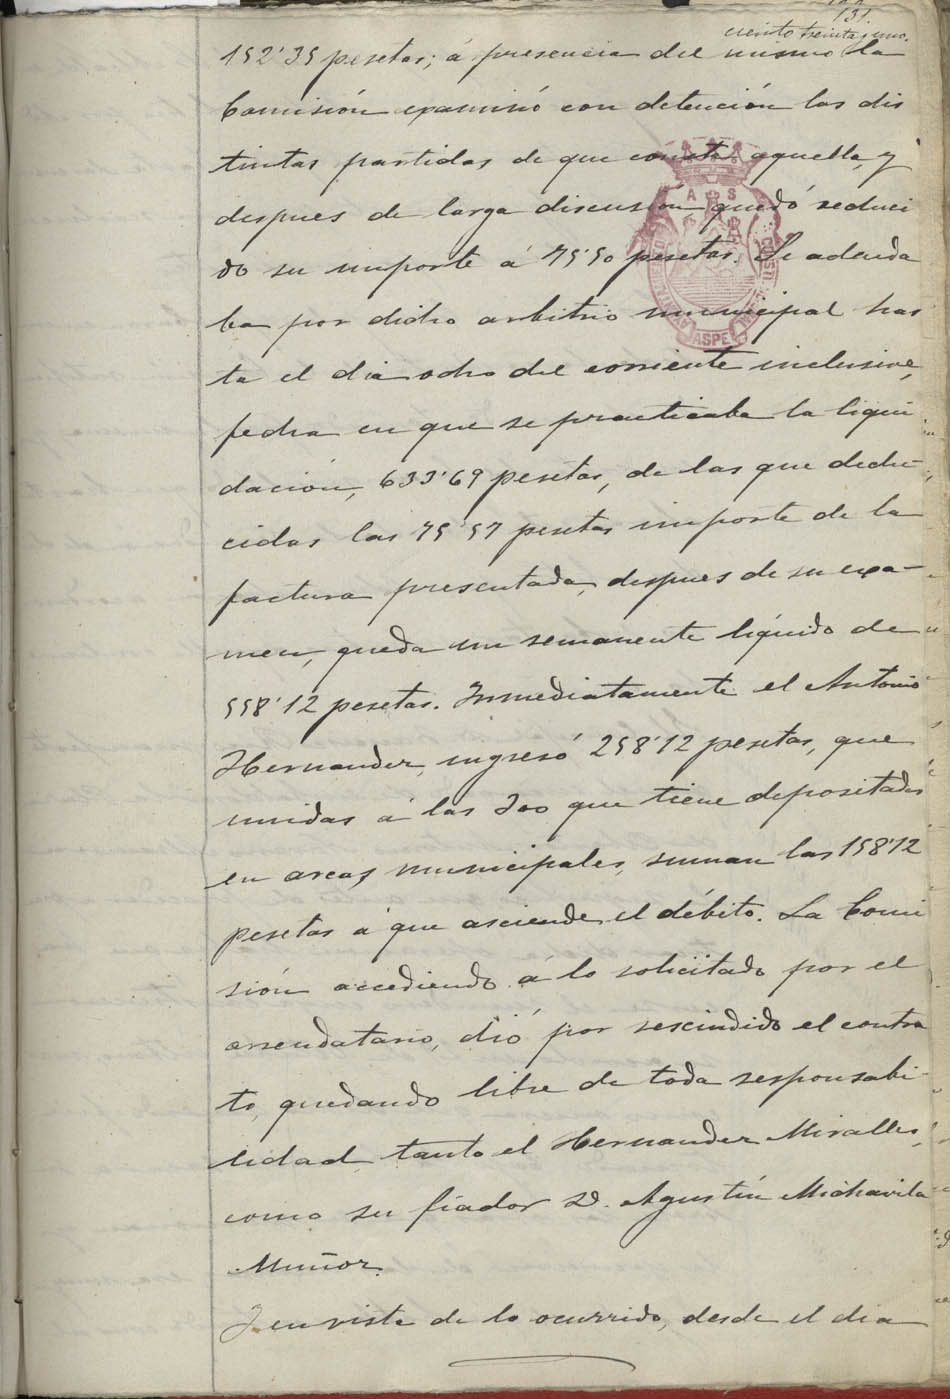 131.
ciento treinta y uno.
152'35 pesetas; á presencia del mismo la
Comisión examinó con detención las dis
tintas partidas de que consta aquella, y
despues de larga discusión, quedó reduci
do su importe á 75'50 pesetas. Se adeuda
ba por dicho arbitrio municipal has
ta el dia ocho del corriente inclusive,
fecha en que se practicaba la liqui
dación, 633'69 pesetas, de las que dedu-
cidas las 75'57 pesetas importe de la
factura presentada, despues de su exa-
men, queda un remanente líquido de
558'12 pesetas. Inmediatamente el Antonio
Hernandez, ingresó 258'12 pesetas, que
unidas á las 300 que tiene depositadas
en arcas municipales, suman las 158'12
pesetas á que asciende el débito. La Comi
sión accediendo á lo solicitado por el
arrendatario, dió por rescindido el contra
to, quedando libre de toda responsabi-
lidad tanto el Hernandez Miralles,
como su fiador D. Agustín Michavila
Muñoz.
Y en vista de lo ocurrido, desde el dia
ASPE